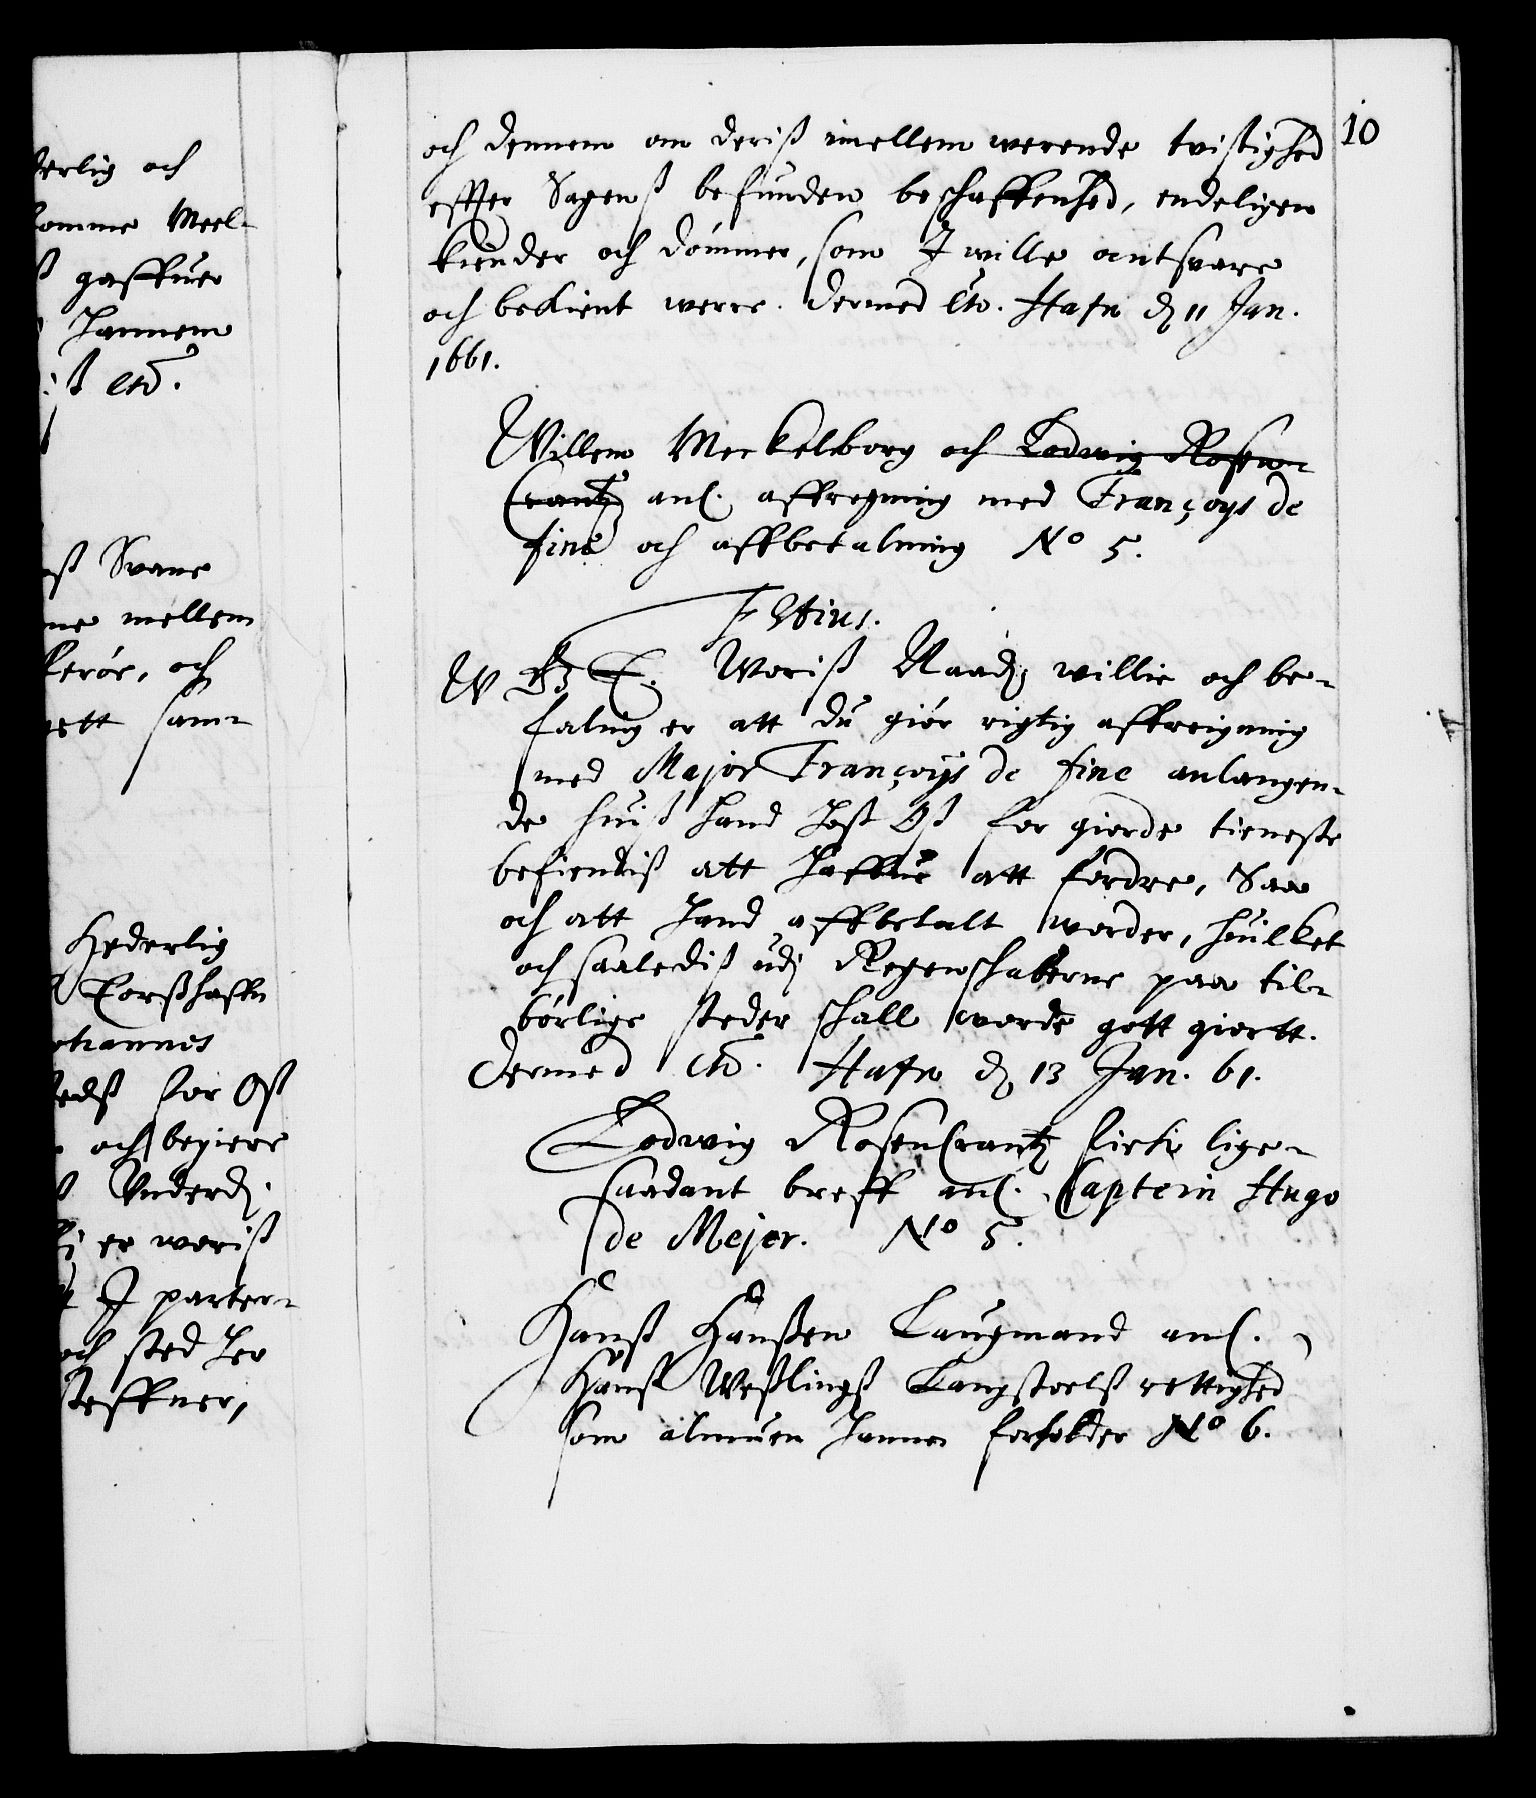 erlig och
komme Meel-
ß gaffuer
hannem
iß etc.
ß Svane
ne mellem
kerör, och
rett sam-
Hederlig
Torßhaffn
ohannis
edß for Oß
och begiere
ß Underd.
er woriß
I parter-
och sted her
steffner,
10
och dennem om deriß imellem werende tvistighed
effter Sagenß befunden beschaffenhed, endeligen
kiender och dömmer, som I wille andtsvare
och bekient werre. dermed etc. Hafn d 11 Jan.
1661.
Willem Meckelborg och Lodwig Rosen-
Crantz anl. affregning med Françoys de
fine och affbetalning No 5.
F Stius.
W G T. Woriß Naad. willie och be-
faling er att du giör rigtig affreigning
med Major Françoÿs de fine anlangen-
de huiß hand hoß Oß for giorde tieneste
befindiß att haffue att fordre, Saa
och att hand affbetalt worder, huilket
och saalediß udj Regenschaberne paa til-
börlige steder schall worde gott giortt.
dermed etc. Hafn d 13 Jan. 61.
Lodwig RosenCrantz fick lige-
saadant breff anl. Captein Hugo
de Mejer. No 5.
Hanß Hanßen Laugmand anl.
Hanß Weßlingß Laugstoelß rettighed
som almuen hannem forholder No 6.